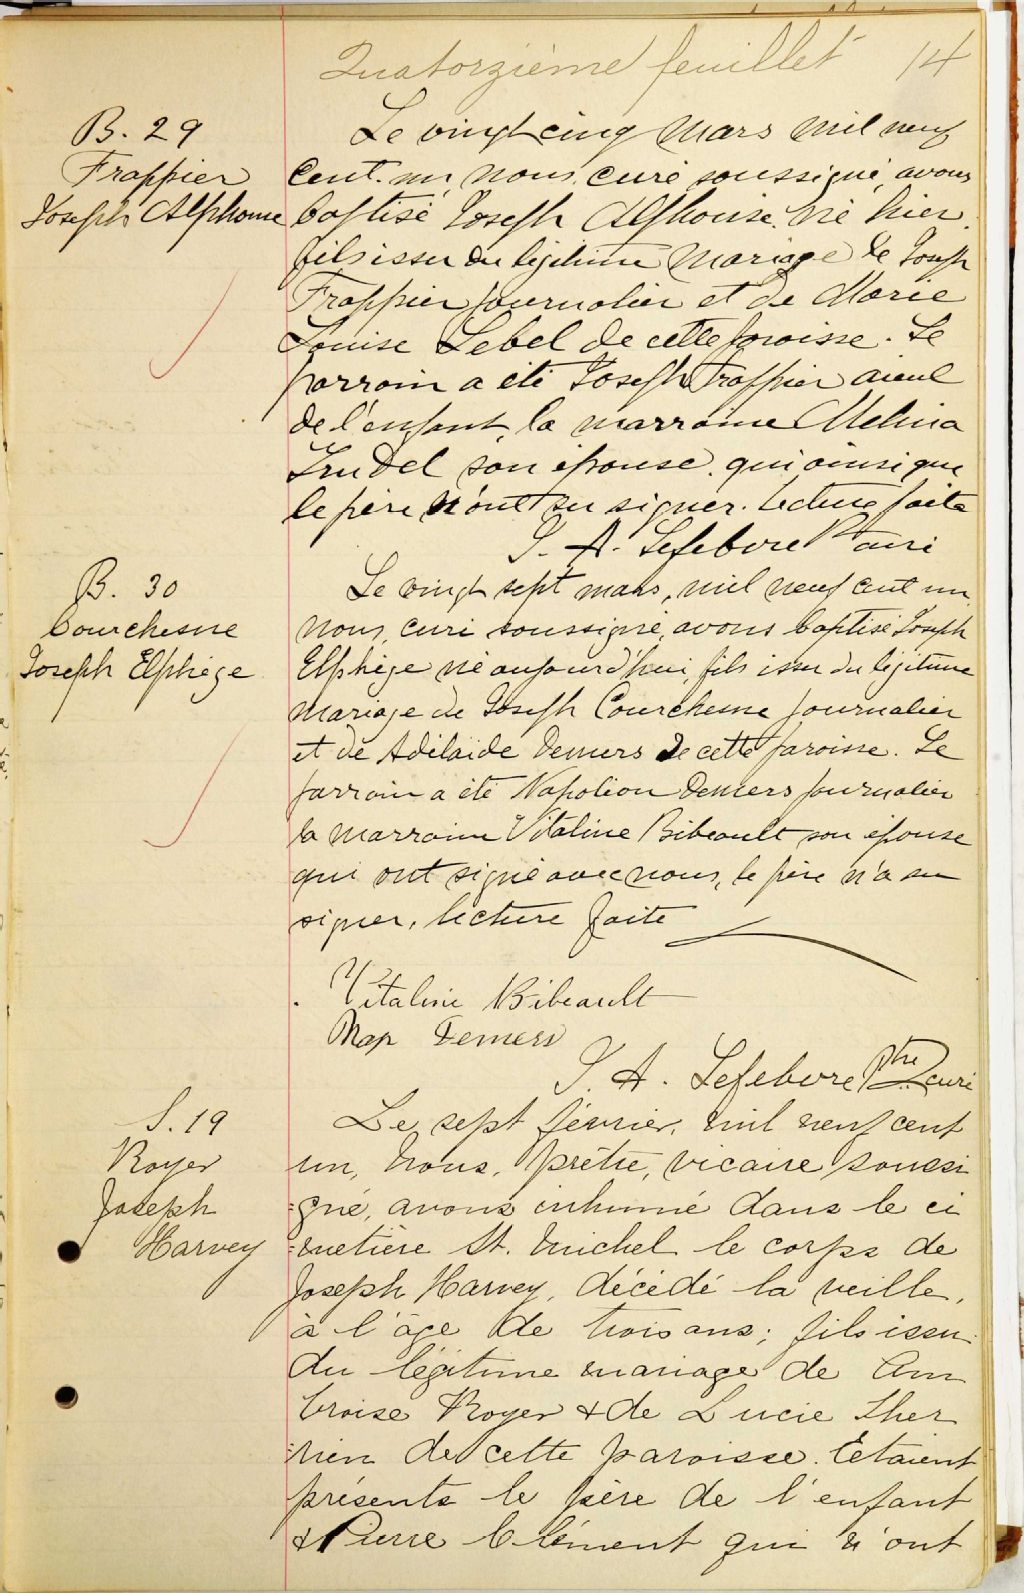 Quatorzième feuillet 14
B. 29
Frappier
Joseph Alphonse
Le vingt cinq mars mil neuf
cent un, nous, curé soussigné, avons
baptisé Joseph Alphonse né hier
fils issu du légitime mariage de Joseph
Frappier journalier et de Marie
Louise Lebel de cette paroisse. Le
parrain a été Joseph Frappier aieul
de l'enfant, la marraine Melina
Trudel son épouse qui ainsi que
le père n'ont su signer. Lecture faite
J. A. Lefebvre Ptre curé
B. 30
Courchesne
Joseph Elphège
Le vingt sept mars, mil neuf cent un
nous, curé soussigné, avons baptisé Joseph
Elphège né aujourd'hui, fils issu du légitime
mariage de Joseph Courchesne journalier
et de Adélaïde Demers de cette paroisse. Le
parrain a été Napoléon Demers journalier
la marraine Vitaline Bibeault son épouse
qui ont signé avec nous, le père n'a su
signer, lecture faite
Vitaline Bibeault
Nap Demers
J. A. Lefebvre Ptre curé
S. 19
Royer
Joseph
Harvey
Le sept février, mil neuf cent
un, nous, prêtre, vicaire soussi
=gné, avons inhumé dans le ci
=metière St. Michel le corps de
Joseph Harvey, décédé la veille,
à l'âge de trois ans; fils issu
du légitime mariage de Am
broise Royer & de Lucie Ther
=rien de cette paroisse. Etaient
présents le père de l'enfant
& Pierre Clément qui n'ont